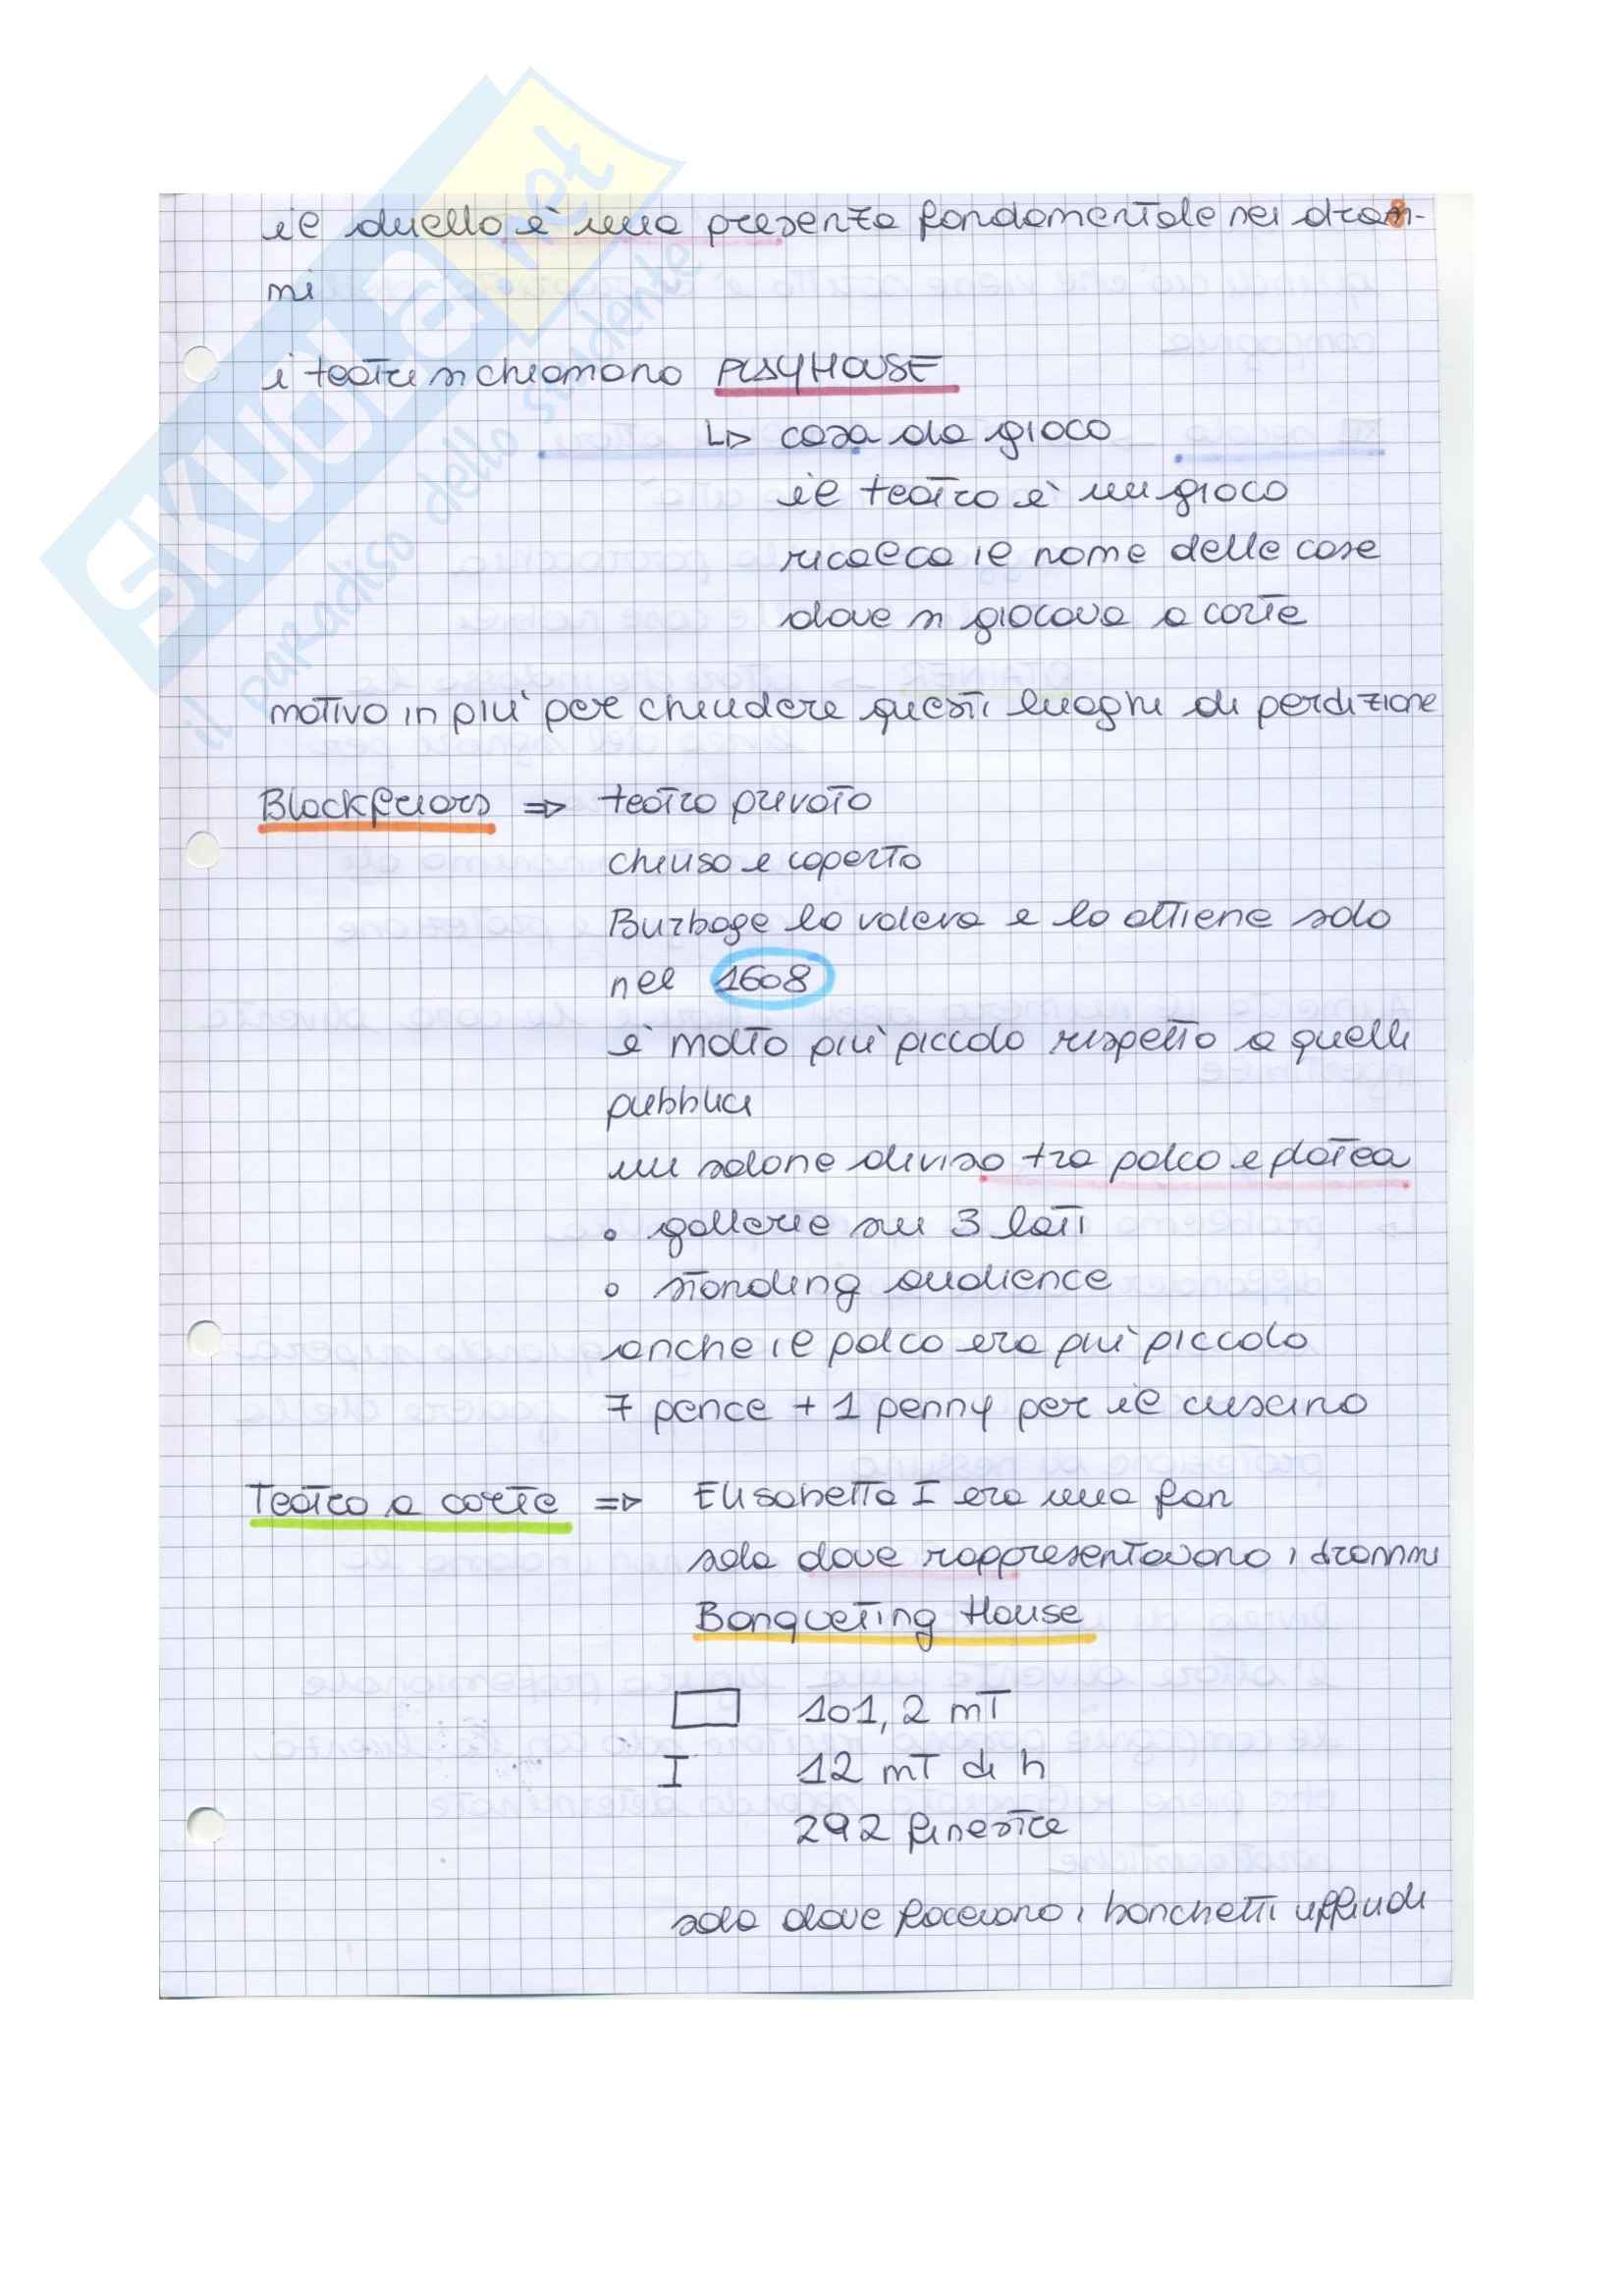 8
il duello è una presenza fondamentale nei dram-
mi
i teatri si chiamano PLAYHOUSE
↳ casa da gioco
il teatro è un gioco
ricalca il nome delle case
dove si giocava a corte
motivo in più per chiudere questi luoghi di perdizione
Blackfriars ⇒ teatro privato
chiuso e coperto
Burbage lo voleva e lo ottiene solo
nel 1608
è molto più piccolo rispetto a quelli
pubblici
un salone diviso tra palco e platea
• gallerie su 3 lati
• standing audience
anche il palco era più piccolo
7 pence + 1 penny per il cuscino
Teatro a corte ⇒ Elisabetta I era una fan
sala dove rappresentavano i drammi
Banqueting House
101,2 mT
I 12 mT di h
292 finestre
sala dove facevano i banchetti ufficiali
SKUOLA.net
il paradiso dello studente